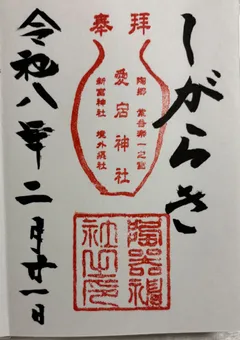 奉拝
しがらき
陶郷 紫香楽一之宮
愛宕神社
新宮神社 境外摂社
陶器祖
社之印
令和八年二月廿一日